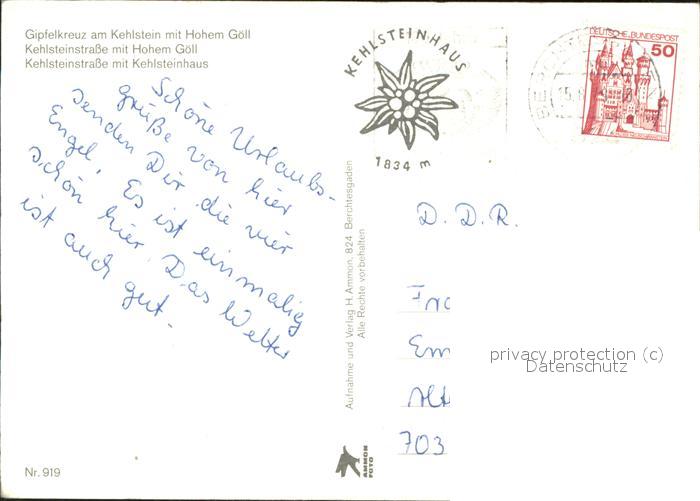 Gipfelkreuz am Kehlstein mit Hohem Göll
Kehlsteinstraße mit Hohem Göll
Kehlsteinstraße mit Kehlsteinhaus
KEHLSTEINHAUS
1834 m
DEUTSCHE BUNDESPOST
50
Schöne Urlaubs-
grüße von hier
senden Dir die vier
Engel. Es ist einmalig
schön hier. Das Wetter
ist auch gut.
Aufnahme und Verlag H. Ammon, 824 Berchtesgaden
Alle Rechte vorbehalten
D. D. R.
703
privacy protection (c)
Datenschutz
AMMON
FOTO
Nr. 919